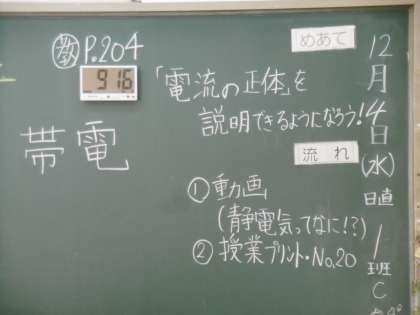 12月4日(水)
日直
1班C
めあて
「電流の正体」を
説明できるようになろう!
流れ
①動画
(静電気ってなに!?)
②授業プリント・No.20
教 P.204
916
帯電